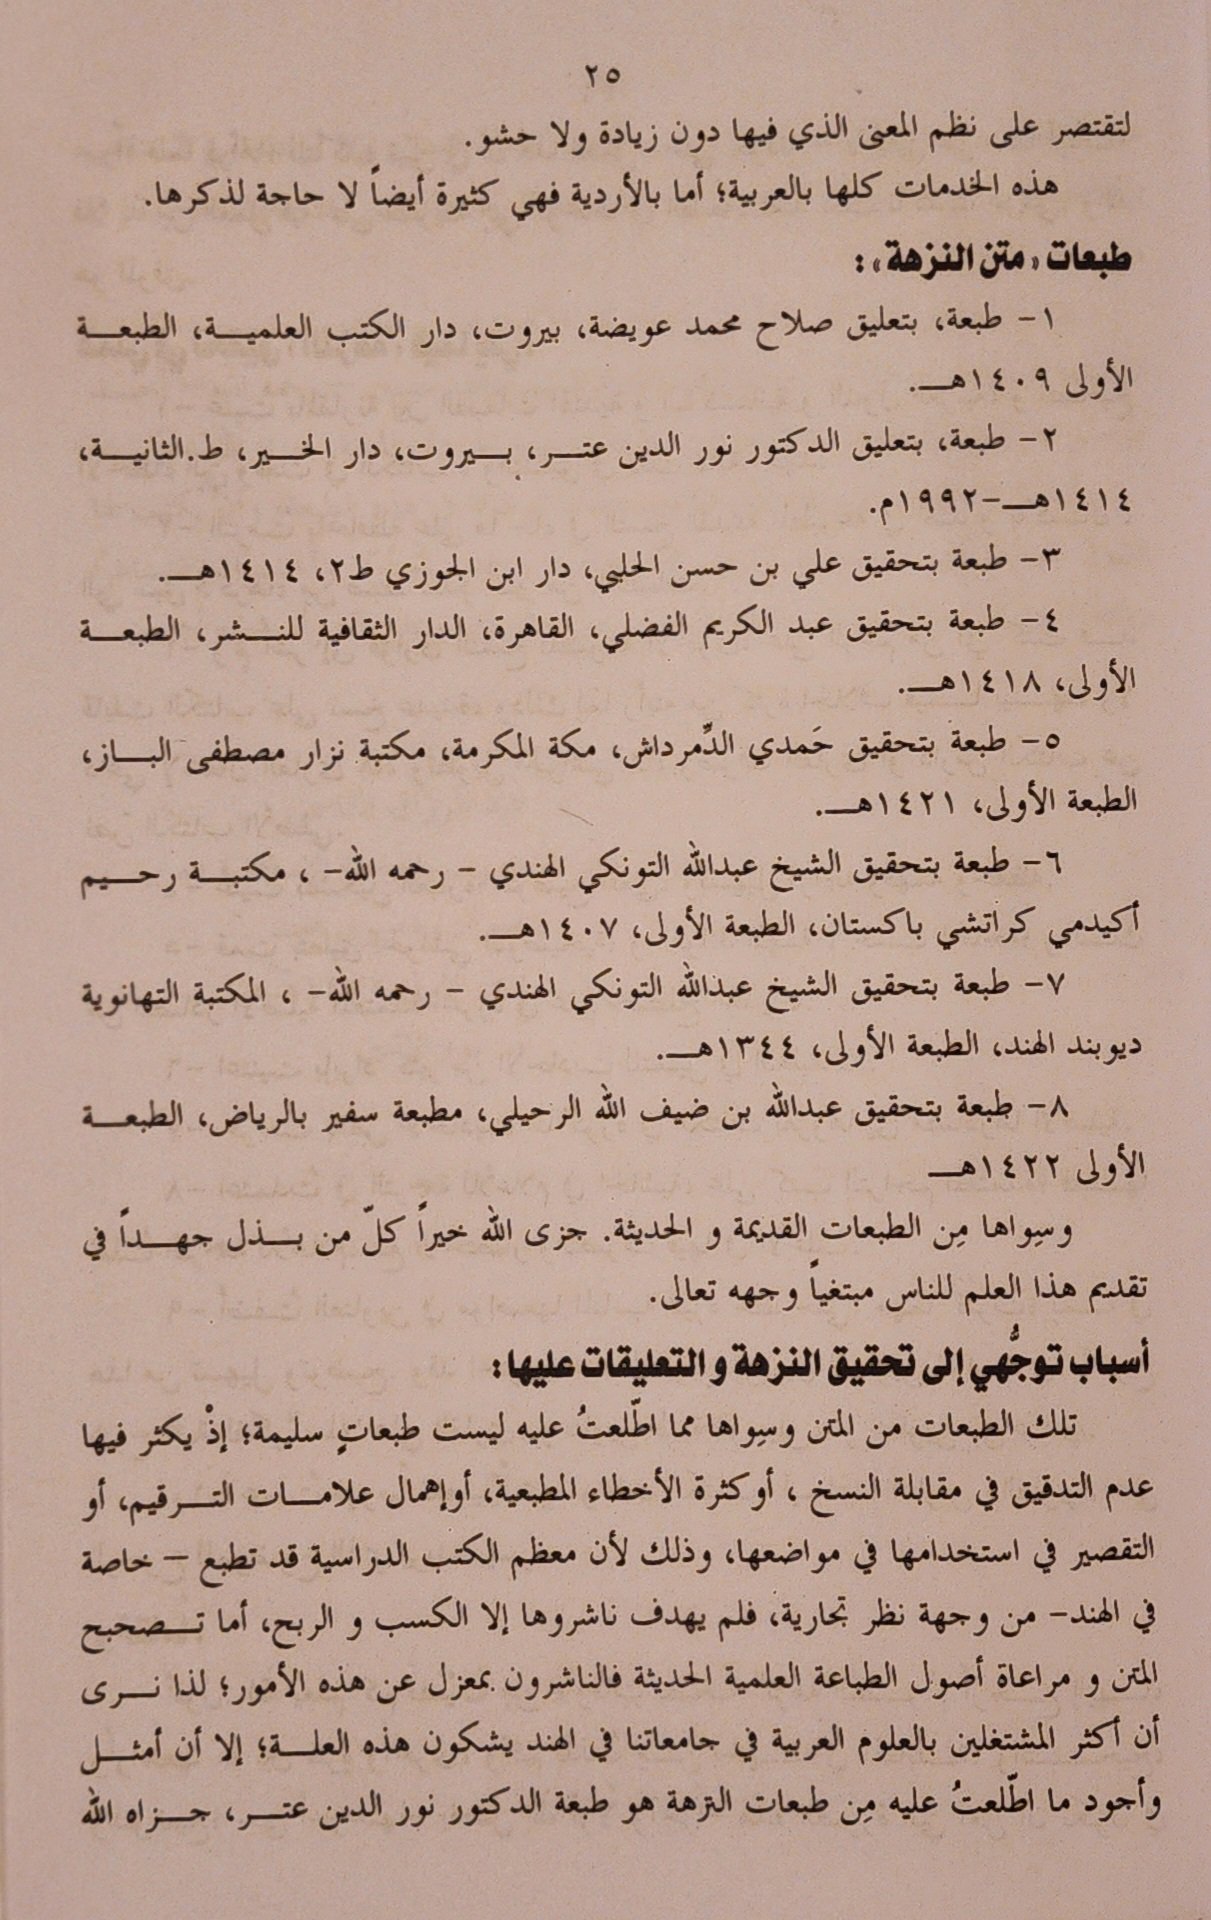 ٢٥
لتقتصر على نظم المعنى الذي فيها دون زيادة ولا حشو.
هذه الخدمات كلها بالعربية؛ أما بالأردية فهي كثيرة أيضاً لا حاجة لذكرها.
طبعات «متن النزهة»:
١- طبعة، بتعليق صلاح محمد عويضة، بيروت، دار الكتب العلمية، الطبعة
الأولى ١٤٠٩هـ.
٢- طبعة، بتعليق الدكتور نور الدين عتر، بيروت، دار الخير، ط.الثانية،
١٤١٤هـ-١٩٩٢م.
٣- طبعة بتحقيق علي بن حسن الحلبي، دار ابن الجوزي ط٢، ١٤١٤هـ.
٤- طبعة بتحقيق عبد الكريم الفضلي، القاهرة، الدار الثقافية للنشر، الطبعة
الأولى، ١٤١٨هـ.
٥- طبعة بتحقيق حَمدي الدِّمرداش، مكة المكرمة، مكتبة نزار مصطفى الباز،
الطبعة الأولى، ١٤٢١هـ.
٦- طبعة بتحقيق الشيخ عبدالله التونكي الهندي - رحمه الله- ، مكتبة رحيم
أكيدمي كراتشي باكستان، الطبعة الأولى، ١٤٠٧هـ.
٧- طبعة بتحقيق الشيخ عبدالله التونكي الهندي - رحمه الله- ، المكتبة التهانوية
ديوبند الهند، الطبعة الأولى، ١٣٤٤هـ.
٨- طبعة بتحقيق عبدالله بن ضيف الله الرحيلي، مطبعة سفير بالرياض، الطبعة
الأولى ١٤٢٢هـ
وسِواها مِن الطبعات القديمة و الحديثة. جزى الله خيراً كلّ من بذل جهداً في
تقديم هذا العلم للناس مبتغياً وجهه تعالى.
أسباب توجُّهي إلى تحقيق النزهة و التعليقات عليها:
تلك الطبعات من المتن وسِواها مما اطّلعتُ عليه ليست طبعاتٍ سليمة؛ إذْ يكثر فيها
عدم التدقيق في مقابلة النسخ ، أو كثرة الأخطاء المطبعية، أوإهمال علامات الترقيم، أو
التقصير في استخدامها في مواضعها، وذلك لأن معظم الكتب الدراسية قد تطبع – خاصة
في الهند- من وجهة نظر تجارية، فلم يهدف ناشروها إلا الكسب و الربح، أما تصحيح
المتن و مراعاة أصول الطباعة العلمية الحديثة فالناشرون بمعزل عن هذه الأمور؛ لذا نرى
أن أكثر المشتغلين بالعلوم العربية في جامعاتنا في الهند يشكون هذه العلة؛ إلا أن أمثل
وأجود ما اطّلعتُ عليه مِن طبعات النزهة هو طبعة الدكتور نور الدين عتر، جزاه الله